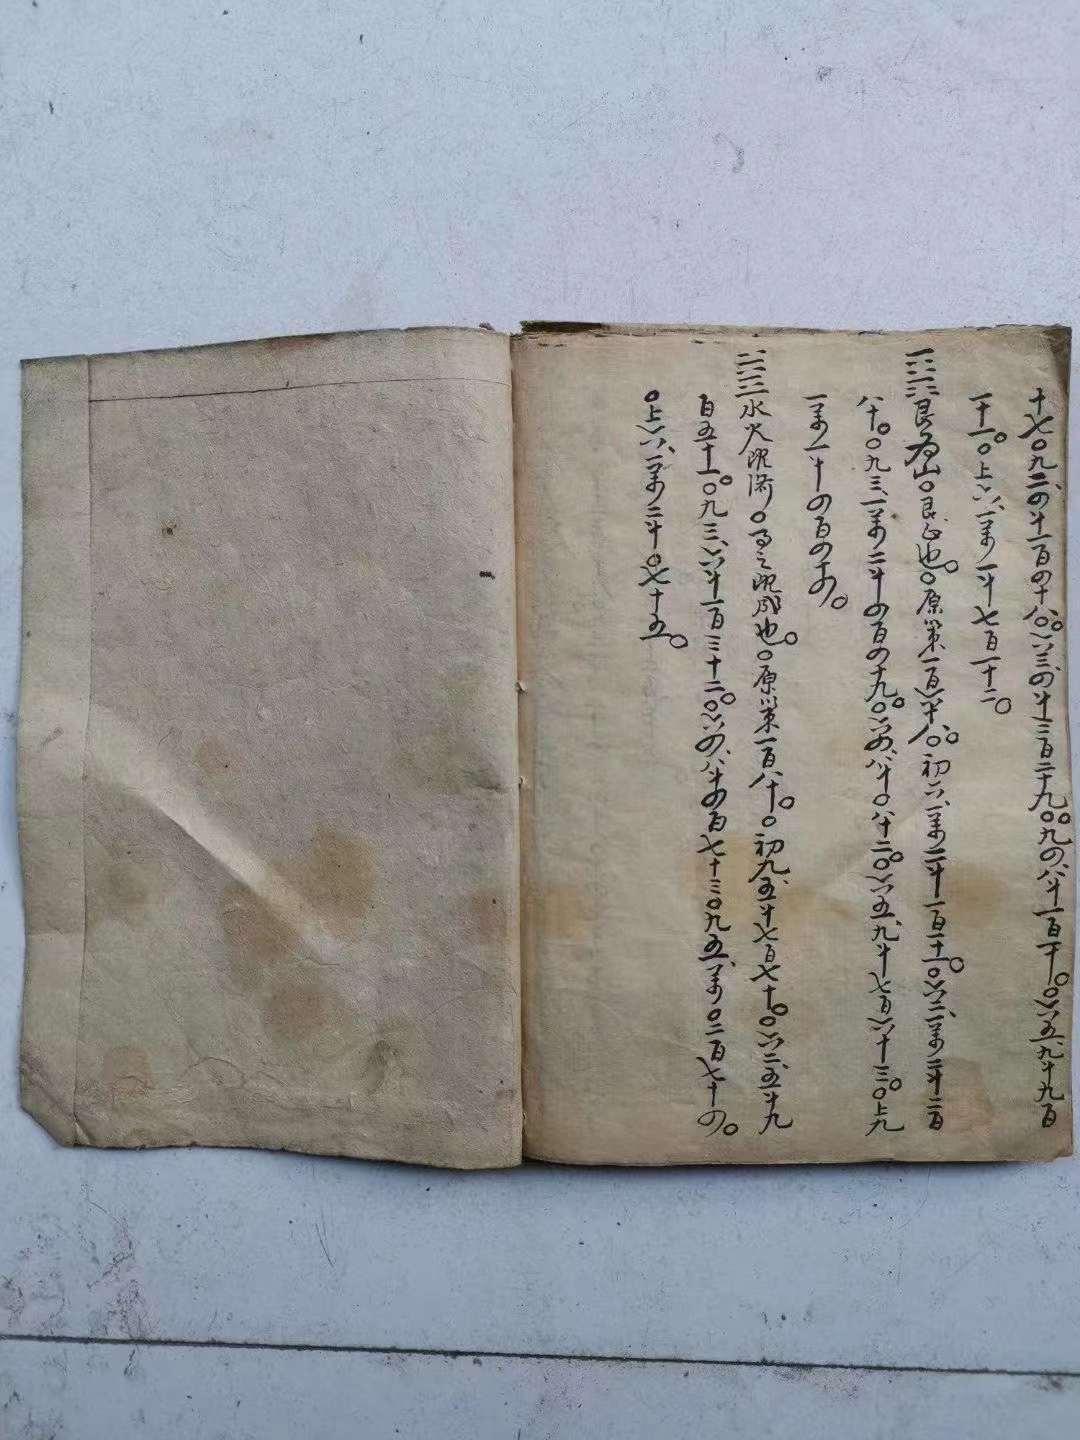 十七〇九二、四千一百四十八〇〇六三、四千三百二十九〇〇九四、八千一百一十〇〇六五、九千九百
一十一〇〇上六、一萬一千七百一十二〇
艮為山〇艮止也〇〇原策一百六十八〇〇初六、一萬二千一百一十一〇〇六二、一萬二千二百
八十〇〇九三、一萬二千四百四十九〇〇六四、八千〇八十二〇〇六五、九千七百六十三〇〇上九
一萬一千四百四十四〇
水火既濟〇事之既成也〇〇原策一百八十〇〇初九、五千七百七十〇〇六二、五千九
百五十一〇〇九三、六千一百三十二〇〇六四、八千四百七十三〇九五、一萬〇二百七十四〇
〇上六、一萬二千〇七十五〇